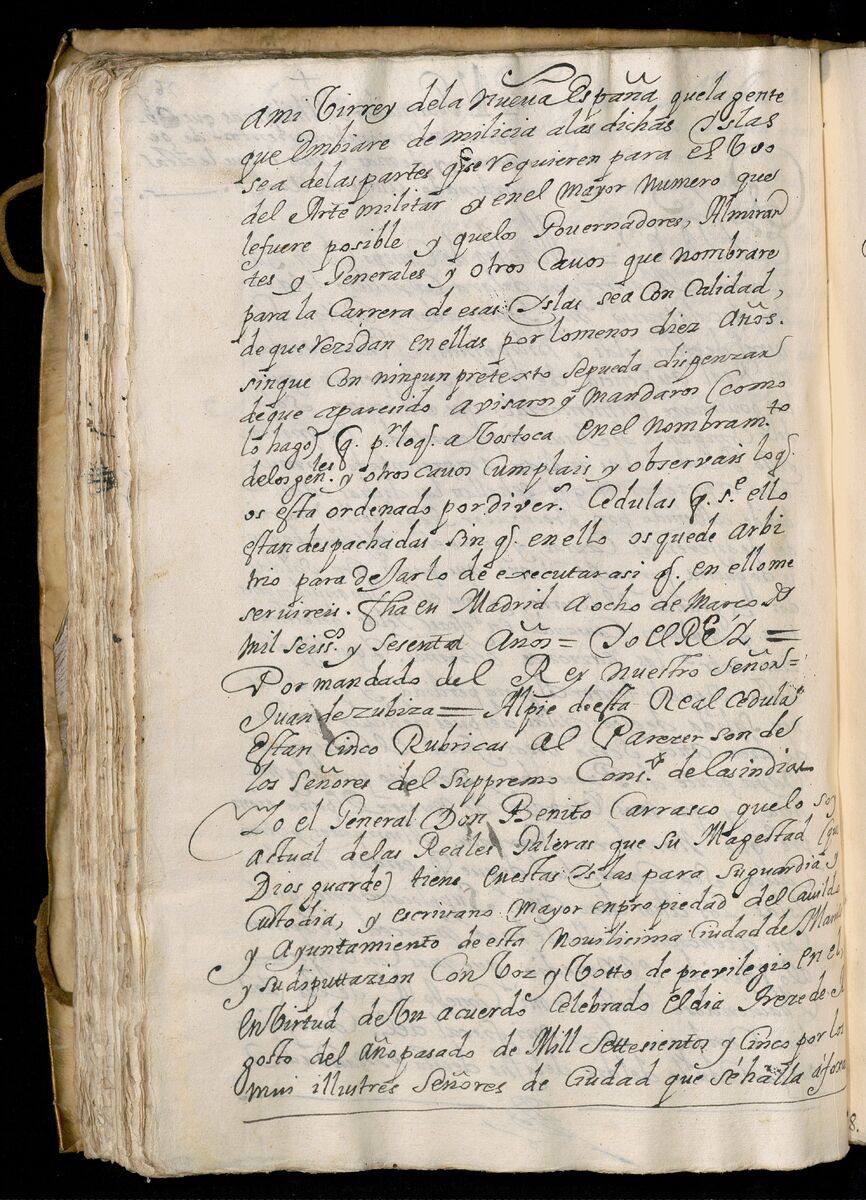 ami Virrey dela Nueva España, quela gente
que Embiare de milicia alas dichas Yslas
sea delas partes q̃ se requieren para el Vso
del Arte militar y enel mayor numero que
lefuere posible y quelos Governadores, Almiran
tes y Generales y otros Cavos que nombrare
para la Carrera de esas Yslas sea Con Calidad,
de que rezidan enellas por lomenos diez Años.
sinque Con ningun pretexto sepueda dispenzar
deque aparesido avisaros y mandaros (como
lo hago) q. p.r loq. a Vos toca enel nombram.to
delos gen.les y otros cavos Cumplais y observais loq.
os esta ordenado por diver.s Cedulas q. s.e ello
estan despachadas sin q. enello os quede arbi
trio para dejarlo de executar asi q. en ello me
servireis. Fha en Madrid a ocho de Março de
mil seiss.s y sesenta Años = Yo el REY =
Por mandado del Rey nuestro Señor =
Juan de zubiza = Alpie de esta Real Cedula
Estan Cinco Rubricas al Parezer son de
los Señores del suppremo Cons.o delas indias
Yo el General Don Benito Carrasco quelo soy
actual delas Reales Galeras que su Magestad (que
Dios guarde) tiene en estas Yslas para su guardia y
Custodia, y escrivano mayor en propiedad del Cavildo
y Ayuntamiento de esta Novilicima Ciudad de
y su diputtazion Con Voz y Votto de previlegio en el
En Virtud de Vn acuerdo Celebrado el dia treze de A
gosto del año pasado de Mill Settesientos y Cinco por los
mui illustres Señores de Ciudad que se halla a
8.